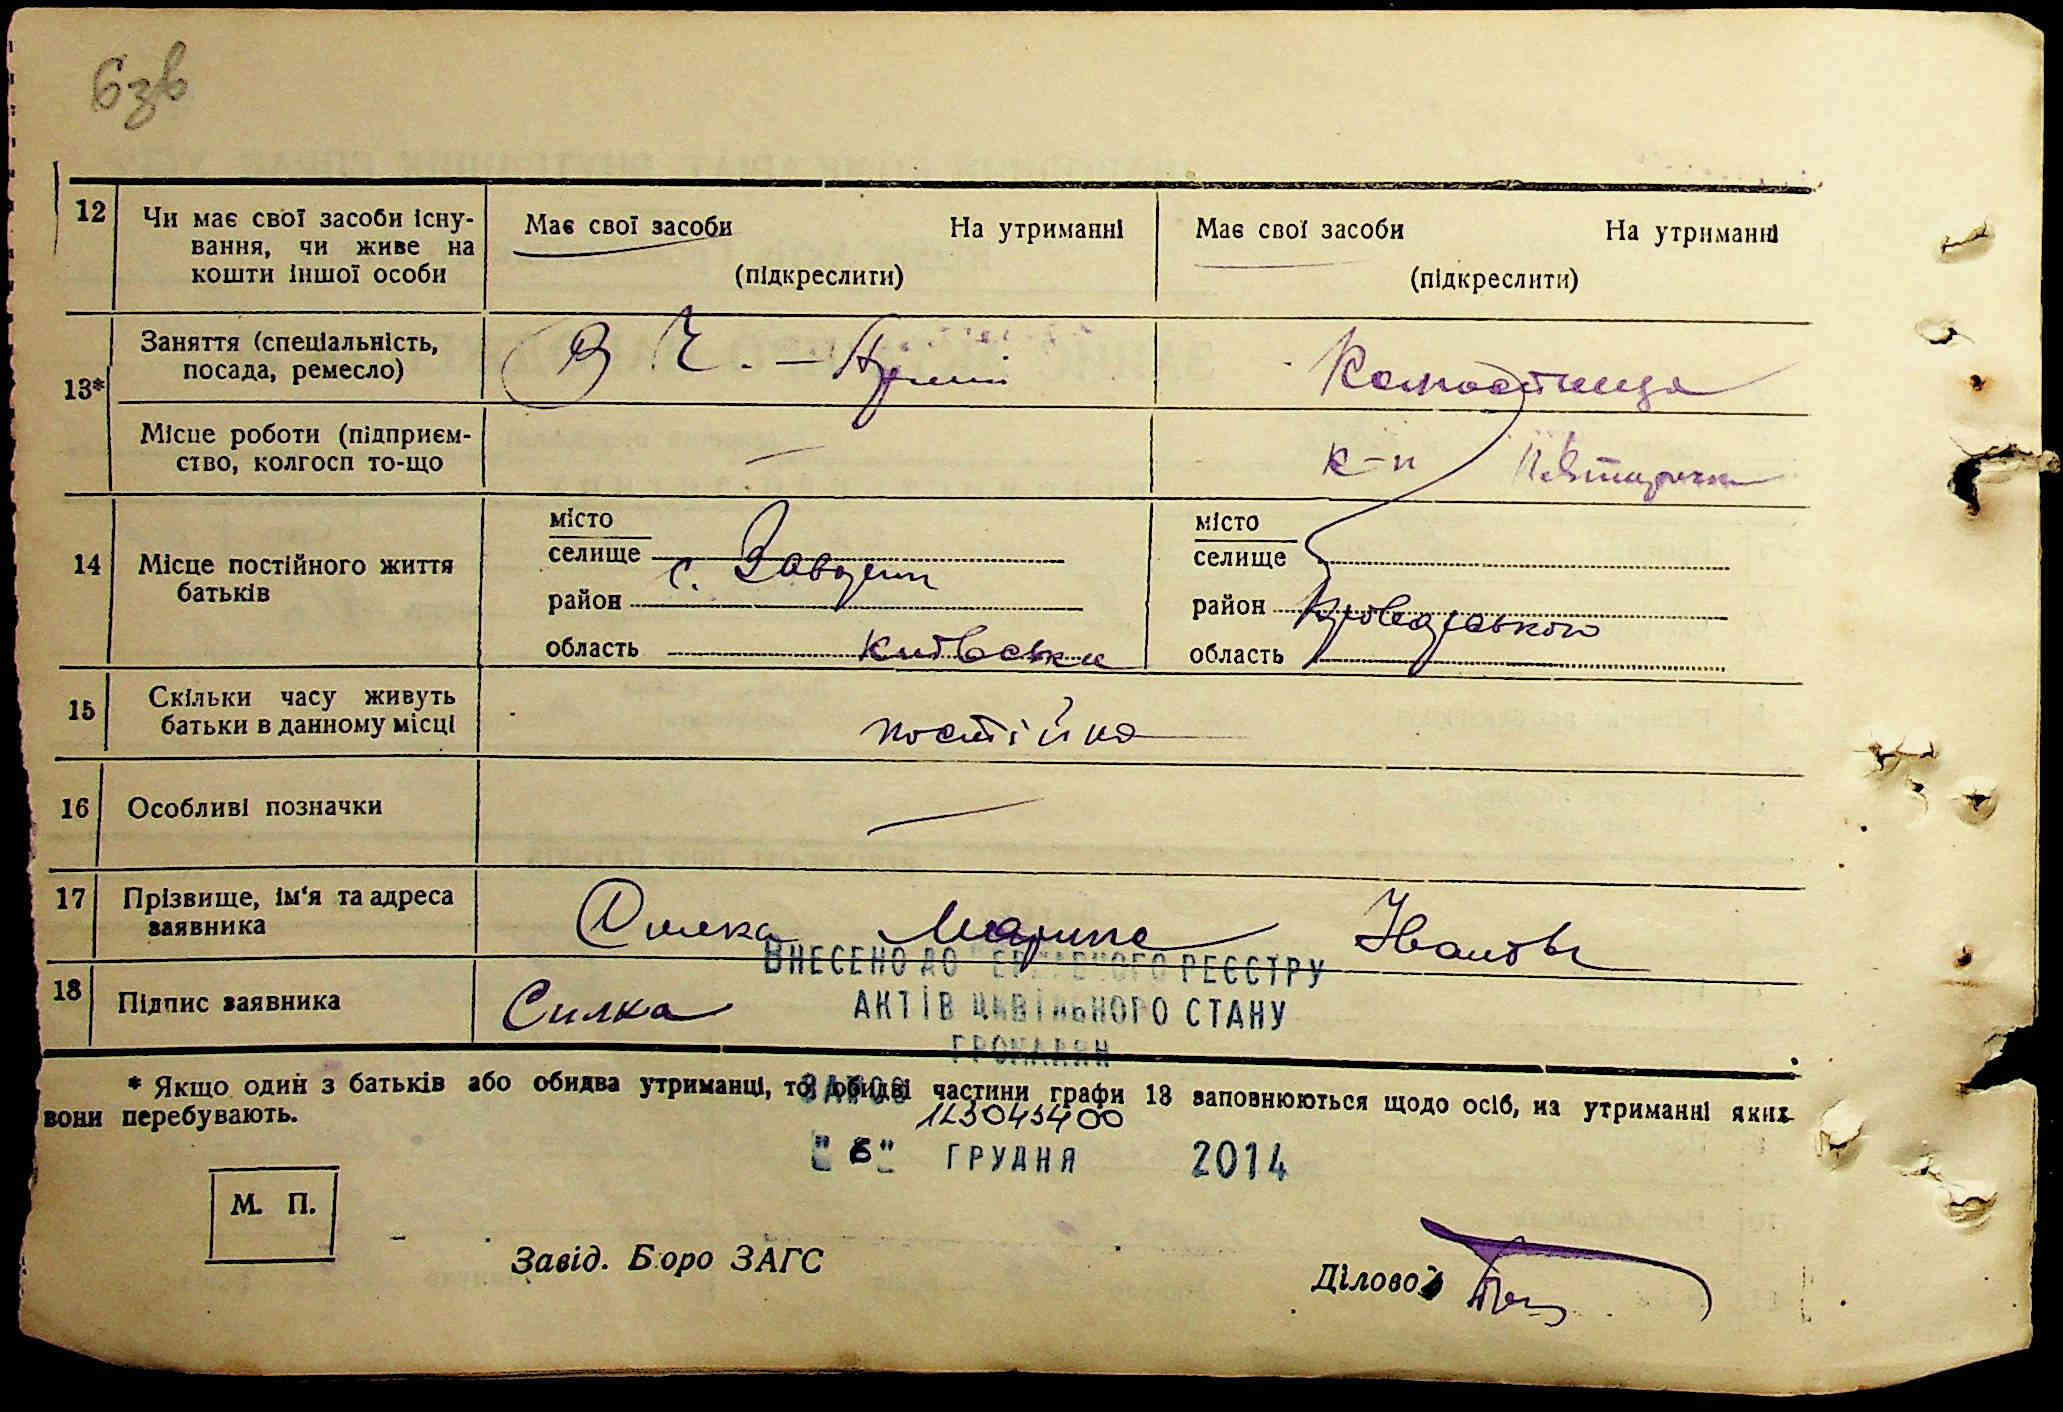 6зв
12
Чи має свої засоби існу-
вання, чи живе на
кошти іншої особи
Має свої засоби На утриманні
(підкреслити)
Має свої засоби На утриманні
(підкреслити)
13*
Заняття (спеціальність,
посада, ремесло)
В Ч. – Армії
Колгоспниця
Місце роботи (підприєм-
ство, колгосп то-що
–
к-п
14
Місце постійного життя
батьків
місто
селище
район
область
с.
Київська
місто
селище
район
область
15
Скільки часу живуть
батьки в данному місці
постійно
16
Особливі позначки
–
17
Прізвище, ім'я та адреса
заявника
Силка Марина Іванівн
18
Підпис заявника
Силка
ВНЕСЕНО ДО "ЕРЖАВНОГО РЕЄСТРУ
АКТІВ ЦИВІЛЬНОГО СТАНУ
ГРОМАДЯН
* Якщо один з батьків або обидва утриманці, то обидві частини графи 13 заповнюються щодо осіб, на утриманні яких
вони перебувають.
"6" ГРУДНЯ 2014
М. П.
Завід. Бюро ЗАГС
Діловод